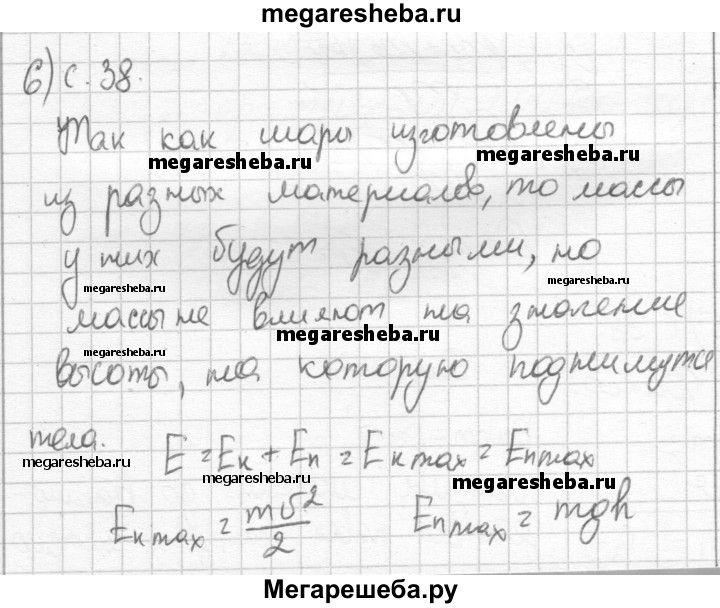 megaresheba.ru
6) с. 38.
Так как шары изготовлены
megaresheba.ru
megaresheba.ru
из разных материалов, то массы
у них будут разными, но
megaresheba.ru
megaresheba.ru
массы не влияют на значение
megaresheba.ru
megaresheba.ru
высоты, на которую поднимутся
тела. E = Eк + Eп = Eк max = Eп max
megaresheba.ru
megaresheba.ru
megaresheba.ru
Eк max = mυ²/2 Eп max = mgh
megaresheba.ru
Мегарешеба.ру